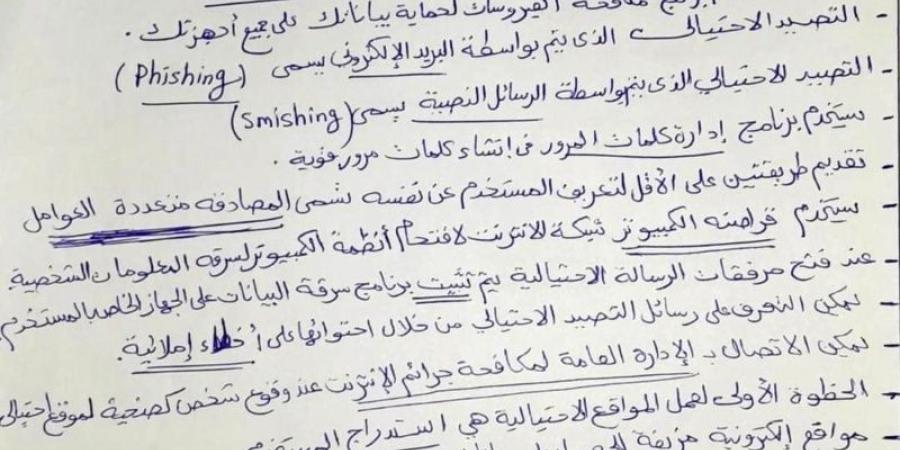 برنامج مكافحة الفيروسات لحماية بياناتك على جميع أجهزتك .
- التصيد الاحتيالى الذى يتم بواسطة البريد الإلكترونى يسمى (Phishing)
- التصيد الاحتيالي الذى يتم بواسطة الرسائل النصية يسمى (Smishing)
- يستخدم برنامج إدارة كلمات المرور فى إنشاء كلمات مرور قوية .
- تقديم طريقتين على الأقل لتعريف المستخدم عن نفسه تسمى المصادقه متعددة العوامل
- يستخدم قراصنه الكمبيوتر شبكة الانترنت لاقتحام أنظمة الكمبيوتر لسرقه المعلومات الشخصية
- عند فتح مرفقات الرسالة الاحتيالية يتم تثبيت برنامج سرقة البيانات على الجهاز الخاص بالمستخدم.
- يمكن التعرف على رسائل التصيد الاحتيالي من خلال احتوائها على أخطاء إملائية.
- يمكن الاتصال بـ الإدارة العامة لمكافحة جرائم الإنترنت عند وقوع شخص كضحية لموقع احتيالى
- الخطوة الأولى لعمل المواقع الاحتيالية هي استدراج
- مواقع إلكترونية مزيفة